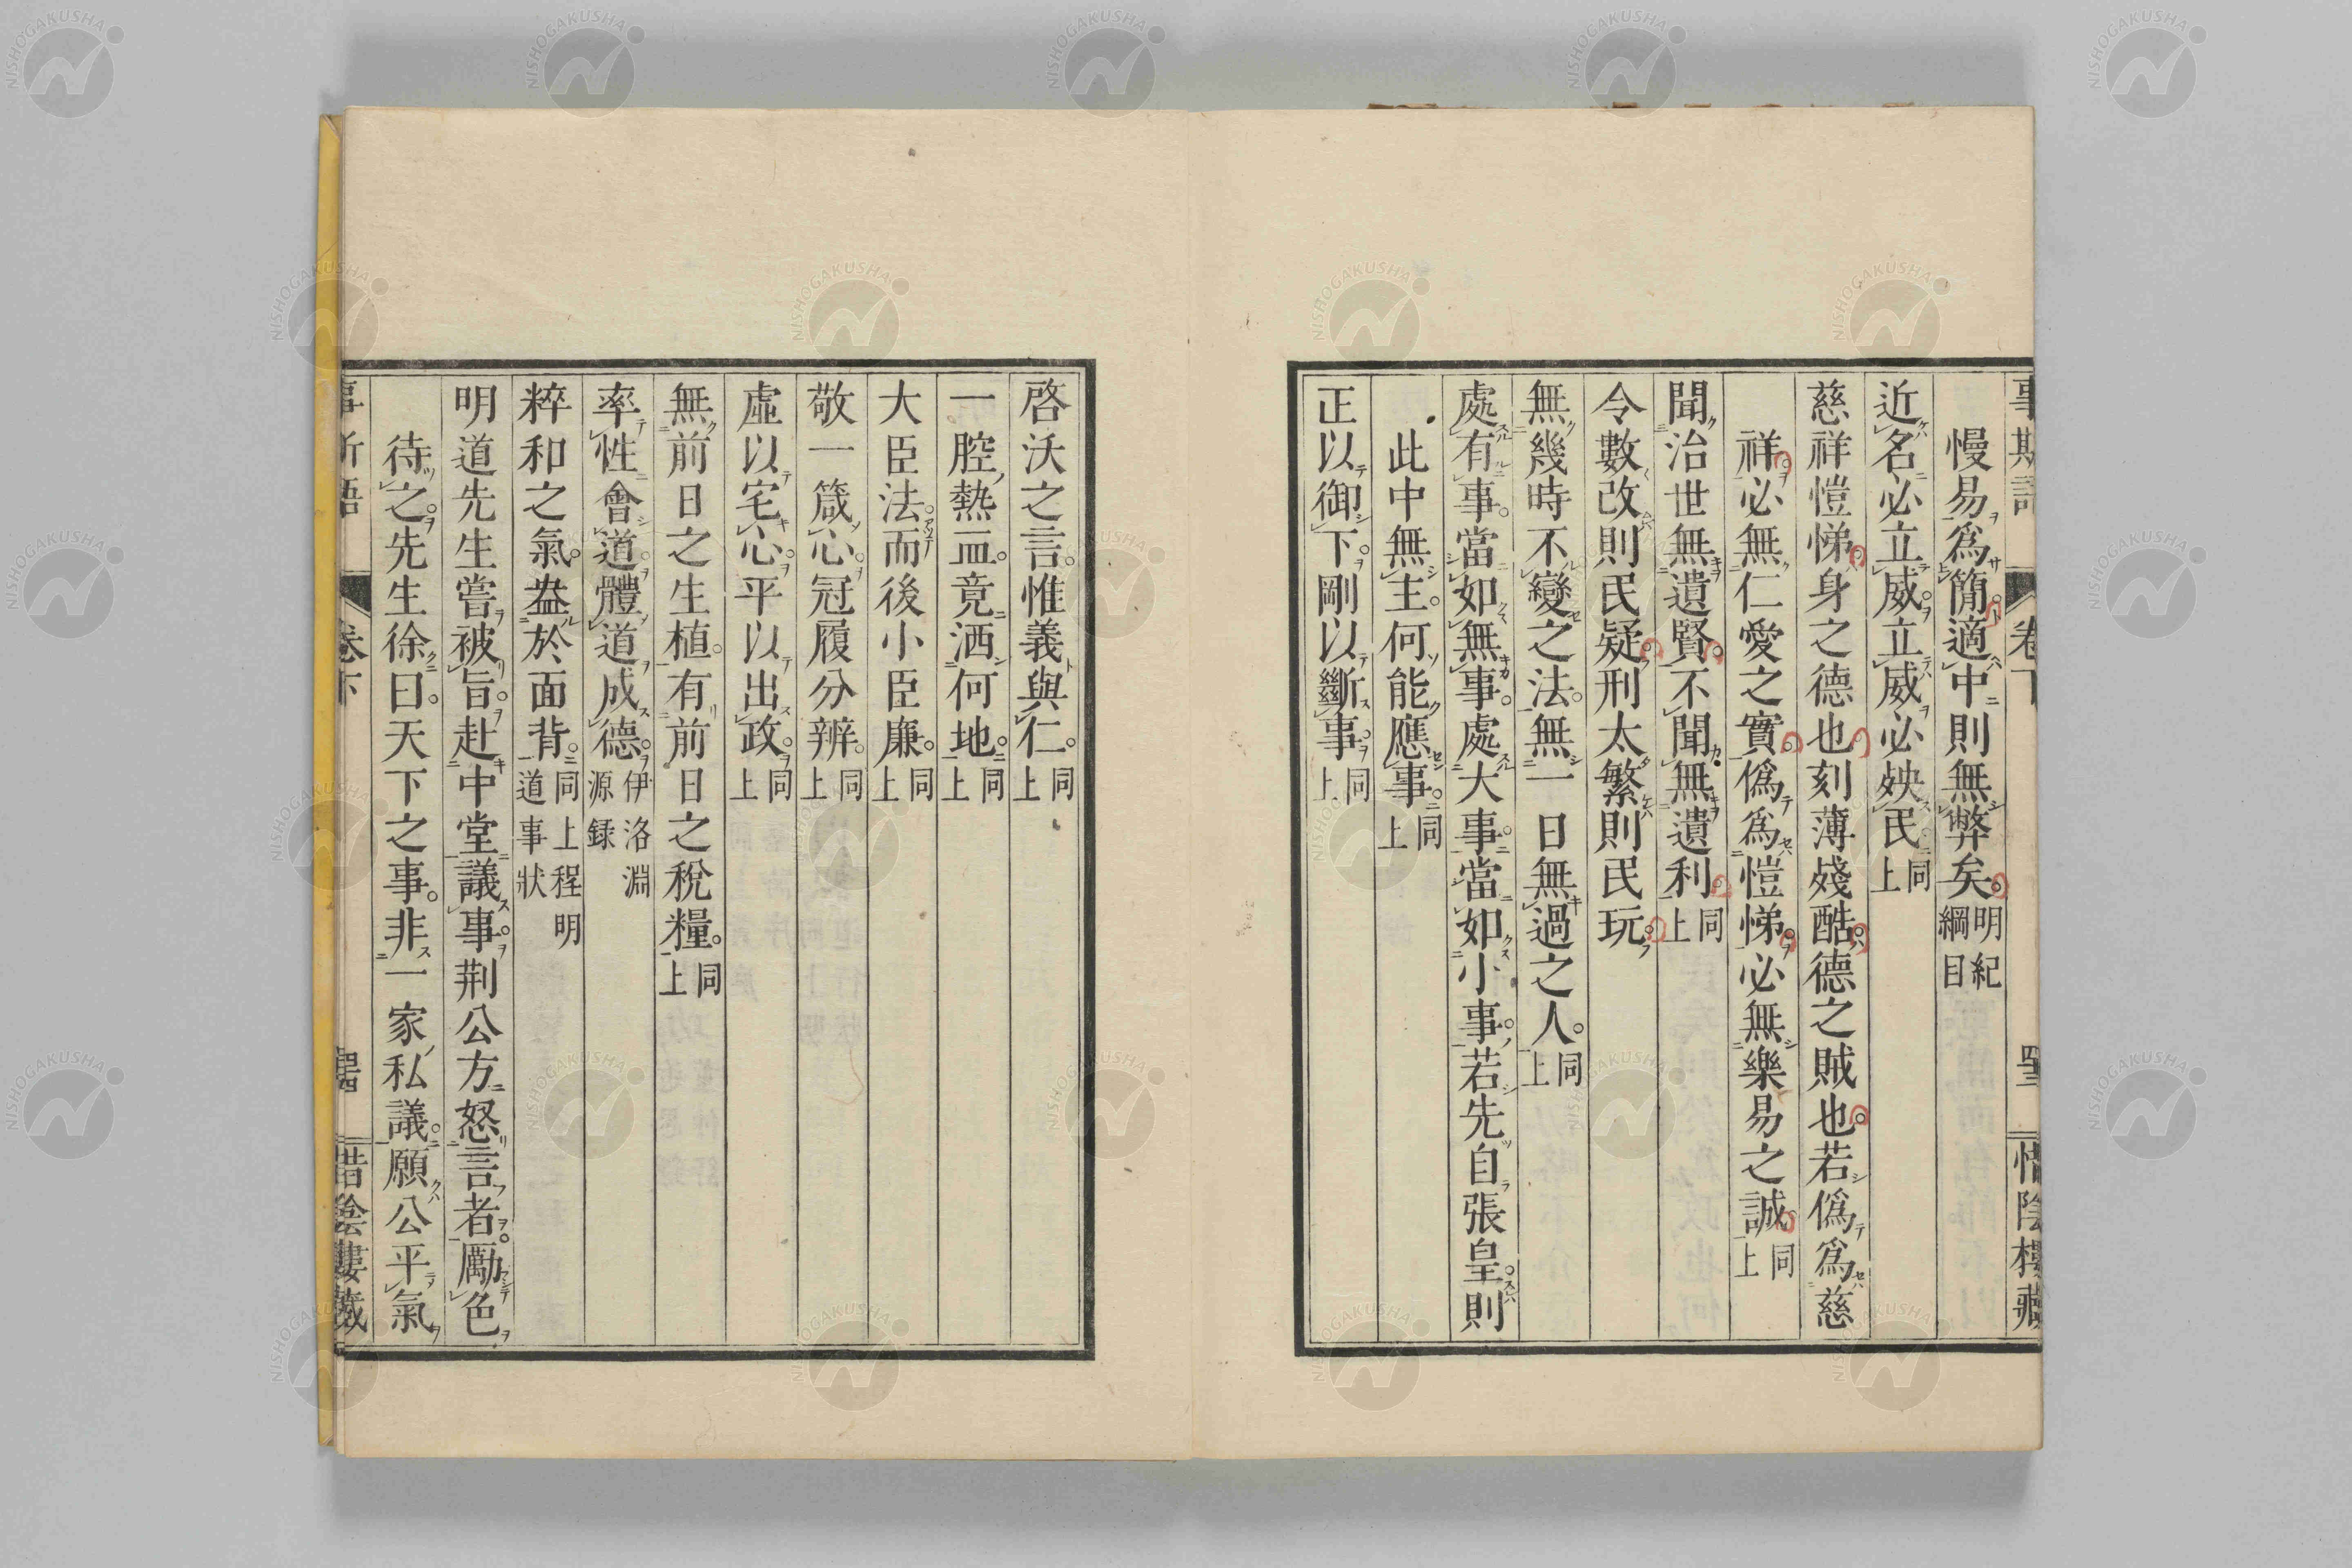 事斯語 卷下 四三 惜陰樓藏
慢易爲簡適中則無弊矣明紀綱目
近名必立威立威必殃民同上
慈祥愷悌身之德也刻薄殘酷德之賊也若僞爲慈
祥必無仁愛之實僞爲愷悌必無樂易之誠同上
聞治世無遺賢不聞無遺利同上
令數改則民疑刑太繁則民玩
無幾時不變之法無一日無過之人同上
處有事當如無事處大事當如小事若先自張皇則
此中無主何能應事同上
正以御下剛以斷事同上
啓沃之言惟義與仁同上
一腔熱血竟洒何地同上
大臣法而後小臣廉同上
敬一箴心冠履分辨同上
虛以宅心平以出政同上
無前日之生植有前日之稅糧同上
率性會道體道成德伊洛淵源錄
粹和之氣盎於面背同上程明道事狀
明道先生嘗被旨赴中堂議事荆公方怒言者勵色
待之先生徐曰天下之事非一家私議願公平氣
事斯語 卷下 惜陰樓藏